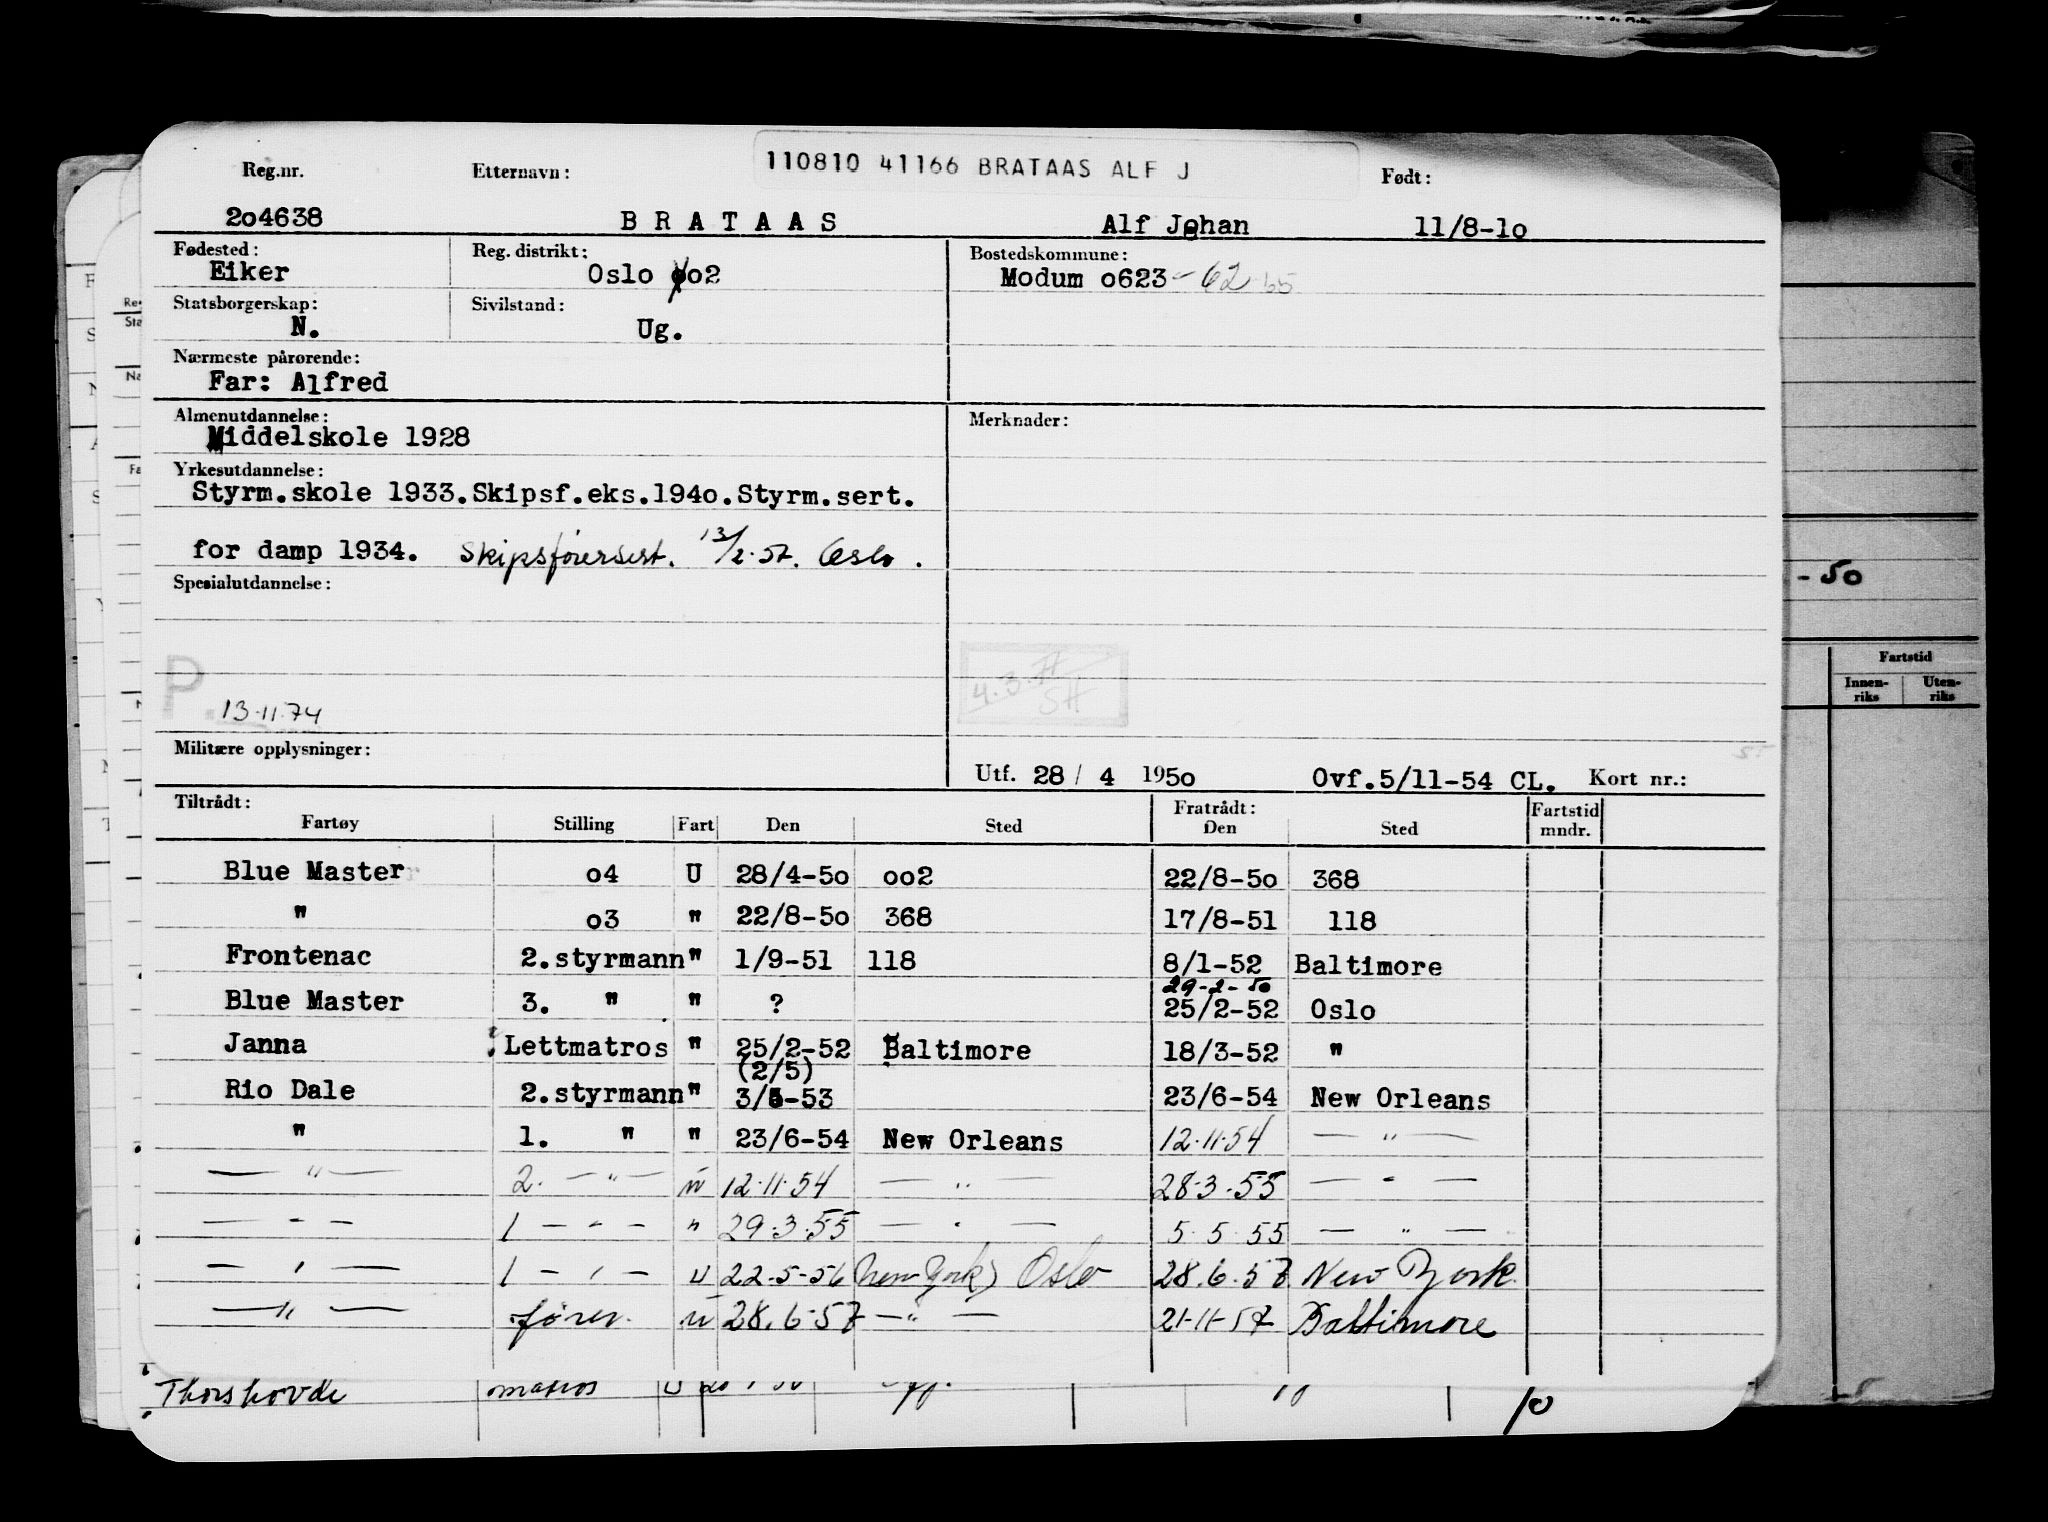 110810 41166 BRATAAS ALF J
Reg.nr. Etternavn: Født:
2o4638 B R A T A A S Alf Johan 11/8-1o
Fødested: Reg. distrikt: Bostedskommune:
Eiker Oslo oo2 Modum o623 - 62
Statsborgerskap: Sivilstand:
N. Ug.
Nærmeste pårørende:
Far: Alfred
Almenutdannelse: Merknader:
Middelskole 1928
Yrkesutdannelse:
Styrm.skole 1933.Skipsf.eks.194o.Styrm.sert.
for damp 1934. Skipsførersert. 13/2-57. Oslo.
Spesialutdannelse:
P.
13.11.74
4.3.77
SH
Militære opplysninger:
Utf. 28 / 4 195o Ovf.5/11-54 CL. Kort nr.:
Tiltrådt: Fratrådt: Fartstid
Fartøy Stilling Fart Den Sted Den Sted mndr.
Blue Master o4 U 28/4-5o oo2 22/8-5o 368
" o3 " 22/8-5o 368 17/8-51 118
Frontenac 2.styrmann " 1/9-51 118 8/1-52 Baltimore
29-2-50
Blue Master 3. " " ? 25/2-52 Oslo
Janna Lettmatros " 25/2-52 Baltimore 18/3-52 "
(2/5)
Rio Dale 2.styrmann " 3/5-53 23/6-54 New Orleans
" 1. " " 23/6-54 New Orleans 12.11.54 — " —
— " — 2. — " — u 12.11.54 — " — 28.3.55 — " —
— " — 1 — " — " 29.3.55 — " — 5.5.55 — " —
— " — 1 — " — u 22.5.56 New York) Oslo 28.6.57 New York.
— " — fører. u 28.6.57 — " — 21-11-57 Baltimore
Thorshovde matros U 10
- 50
Fartstid
Innen-
riks
Uten-
riks